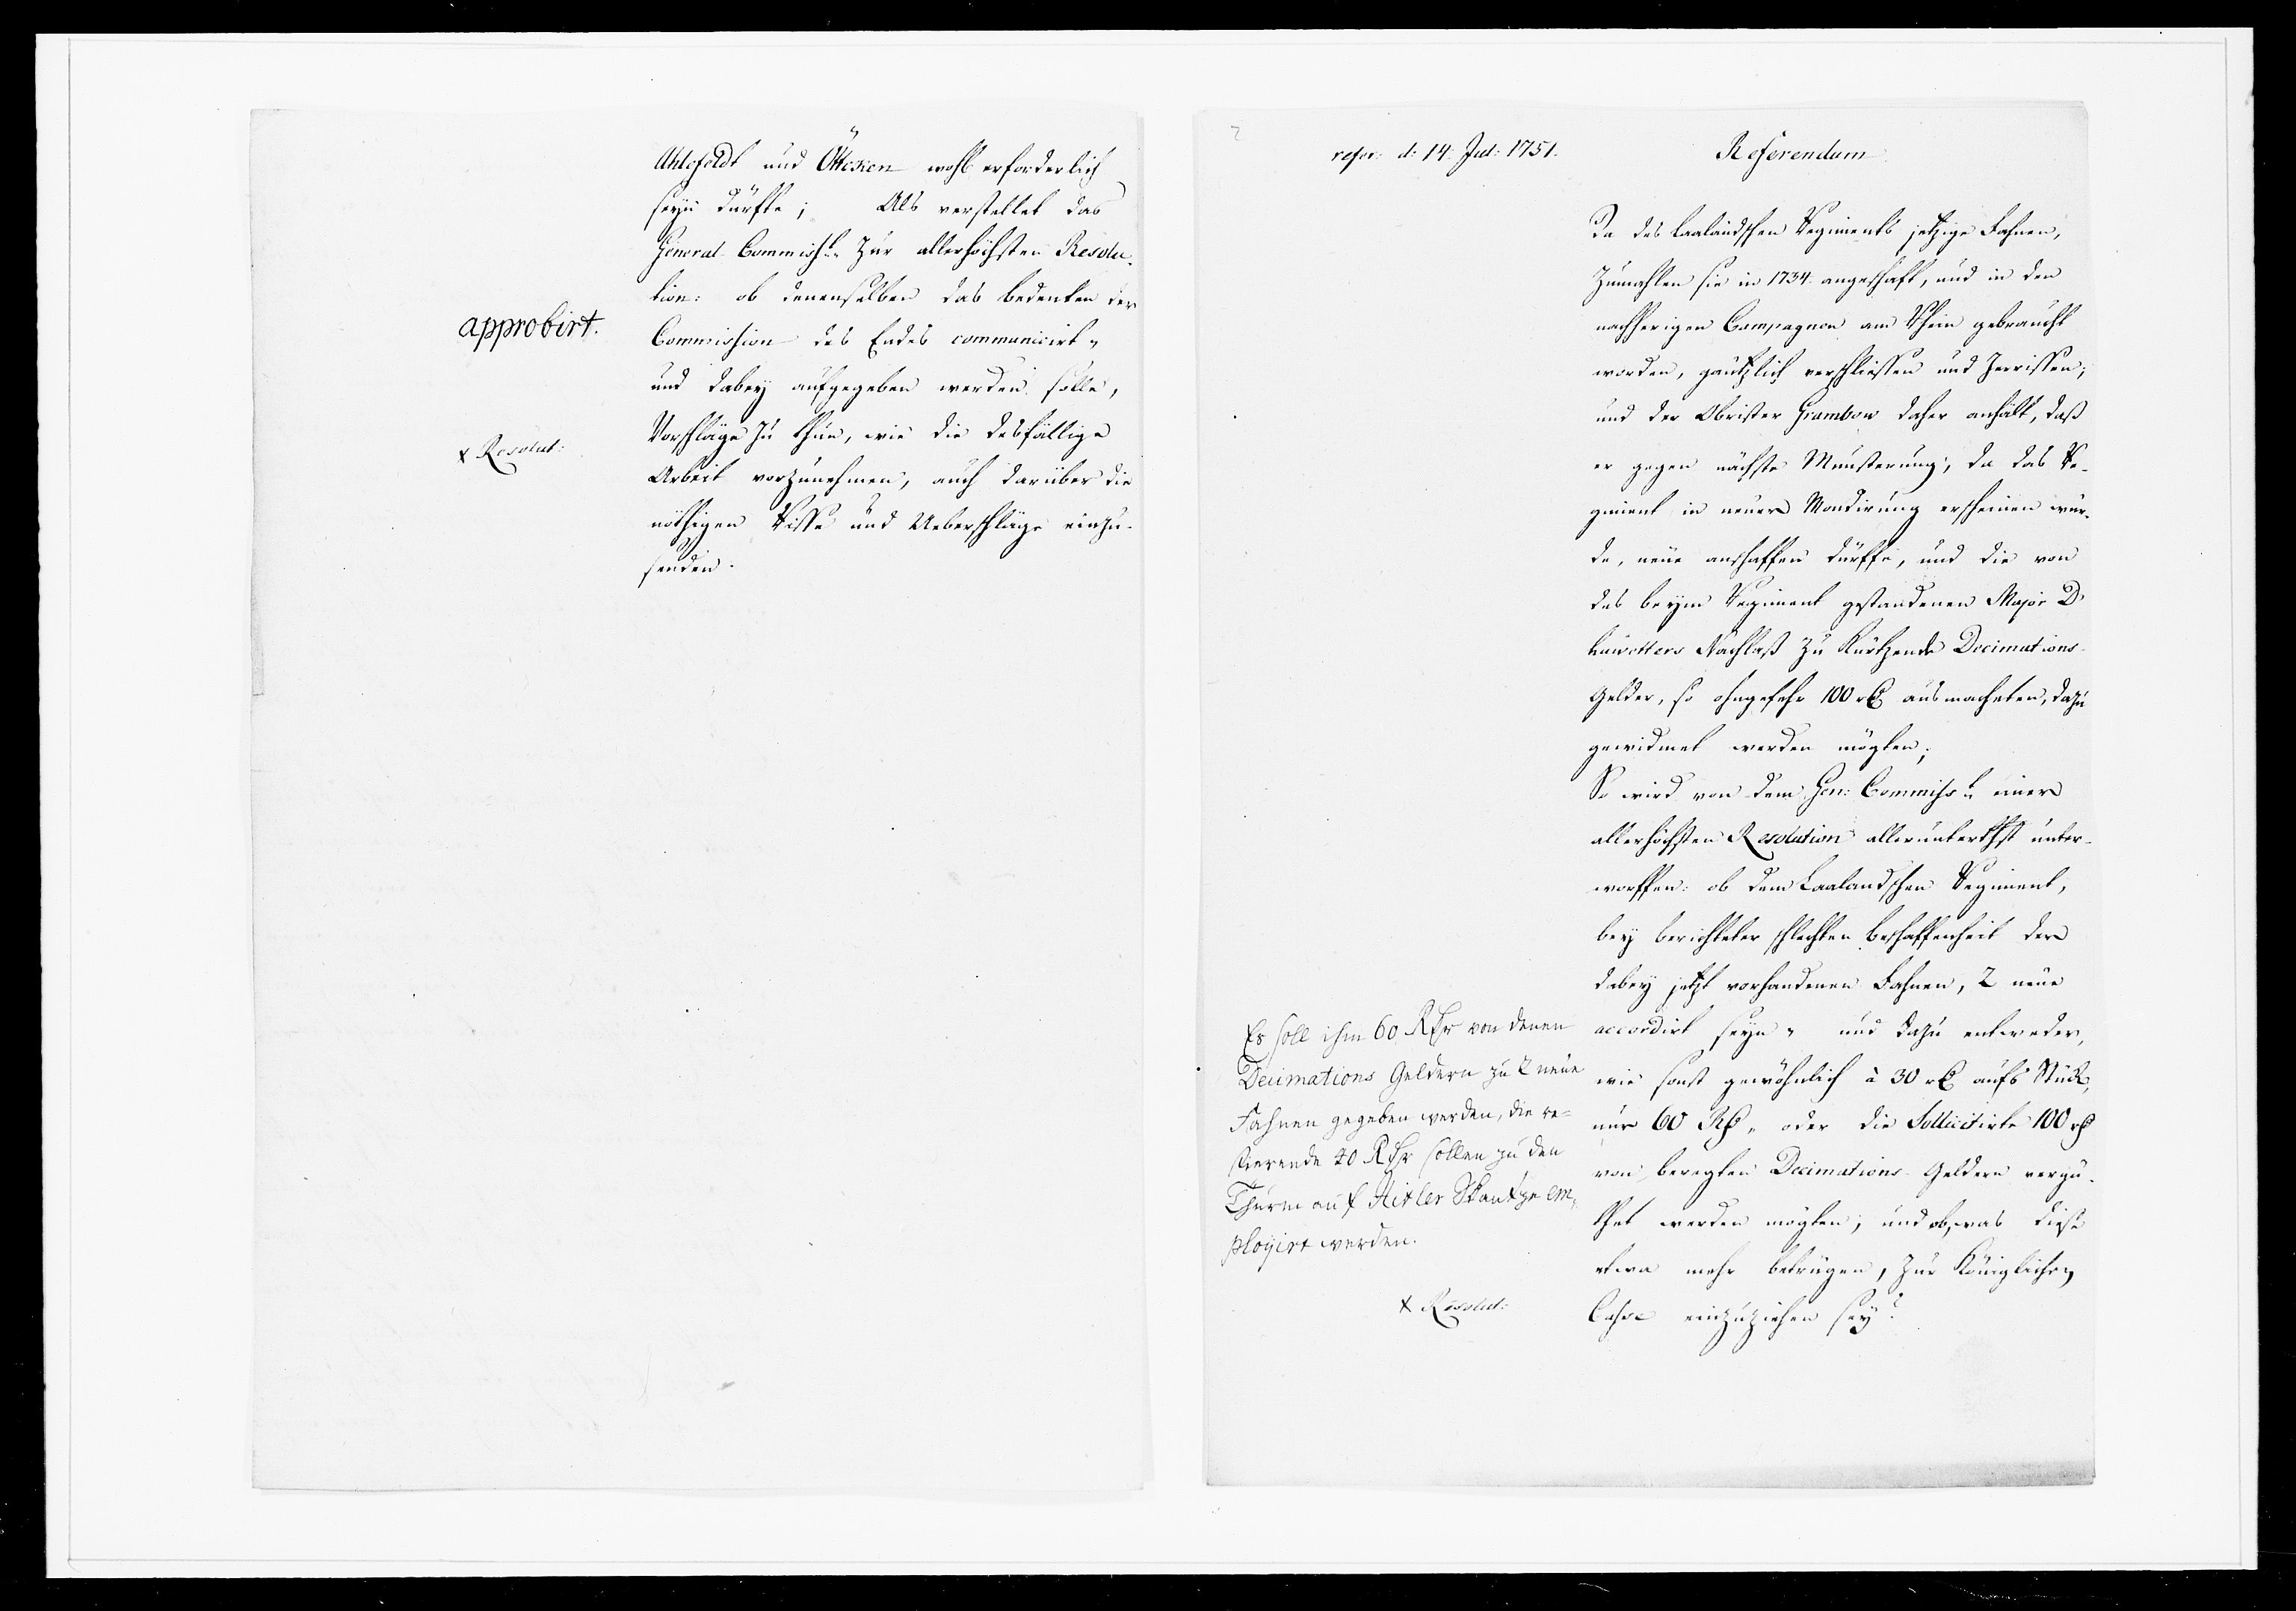 Ahlefeldt und Ötteken wohl erforderlich
seyn dürffte; Als verstellet das
General-Commiss: zur allerhöchsten Resolu-
tion: ob denenselben das bedenken der
Commission des Endes communicirt
und dabey aufgegeben werden solle,
Vorschläge zu thun, wie die desfällige
Arbeit vorzunehmen, auch darüber die
nöthigen Risse und Ueberschläge einzu-
senden.
approbirt.
x Resolut:
refer: d: 14: Jul: 1751.
Referendum
Da des Laalandschen Regiments jetzige Fahnen,
zumahlen sie in 1734. angeschaft, und in den
nachherigen Campagnen am Rhein gebraucht
worden, gäntzlich verschliessen und zerrissen;
und der Obrister Grambow daher anhält, daß
er gegen nächste Munsterung, da das Re-
giment in neuer Mondirung erscheinen wür-
de, neue anschaffen dürffe, und die von
des beym Regiment gestandenen Major
Nachlaß zu kürtzende Decimations-
Gelder, so ohngefehr 100 r ausmacheten, dazu
gewidmet werden mögten;
So wird von dem Gen: Commiss: einer
allerhöchsten Resolution allerunterthst unter-
worffen: ob dem Laalandschen Regiment,
bey berichteter schlechten beschaffenheit der
dabey jetzt vorhandenen Fahnen, 2 neue
accordirt seyn und dazu entweder,
wie sonst gewöhnlich à 30 r aufs Stück,
nur 60 R oder die Sollicitirte 100 r
von beregten Decimations-Geldern vergü-
thet werden mögten; und ob, was diese
etwa mehr betrügen, zur Königlichen
Casse einzuziehen sey?
Es soll ihm 60 Rthr von denen
Decimations Geldern zu 2 neue
Fahnen gegeben werden, die re=
stierende 40 Rthr sollen zu den
Thurm auf Hitler Skantze em,
ployirt werden.
x Resolut: